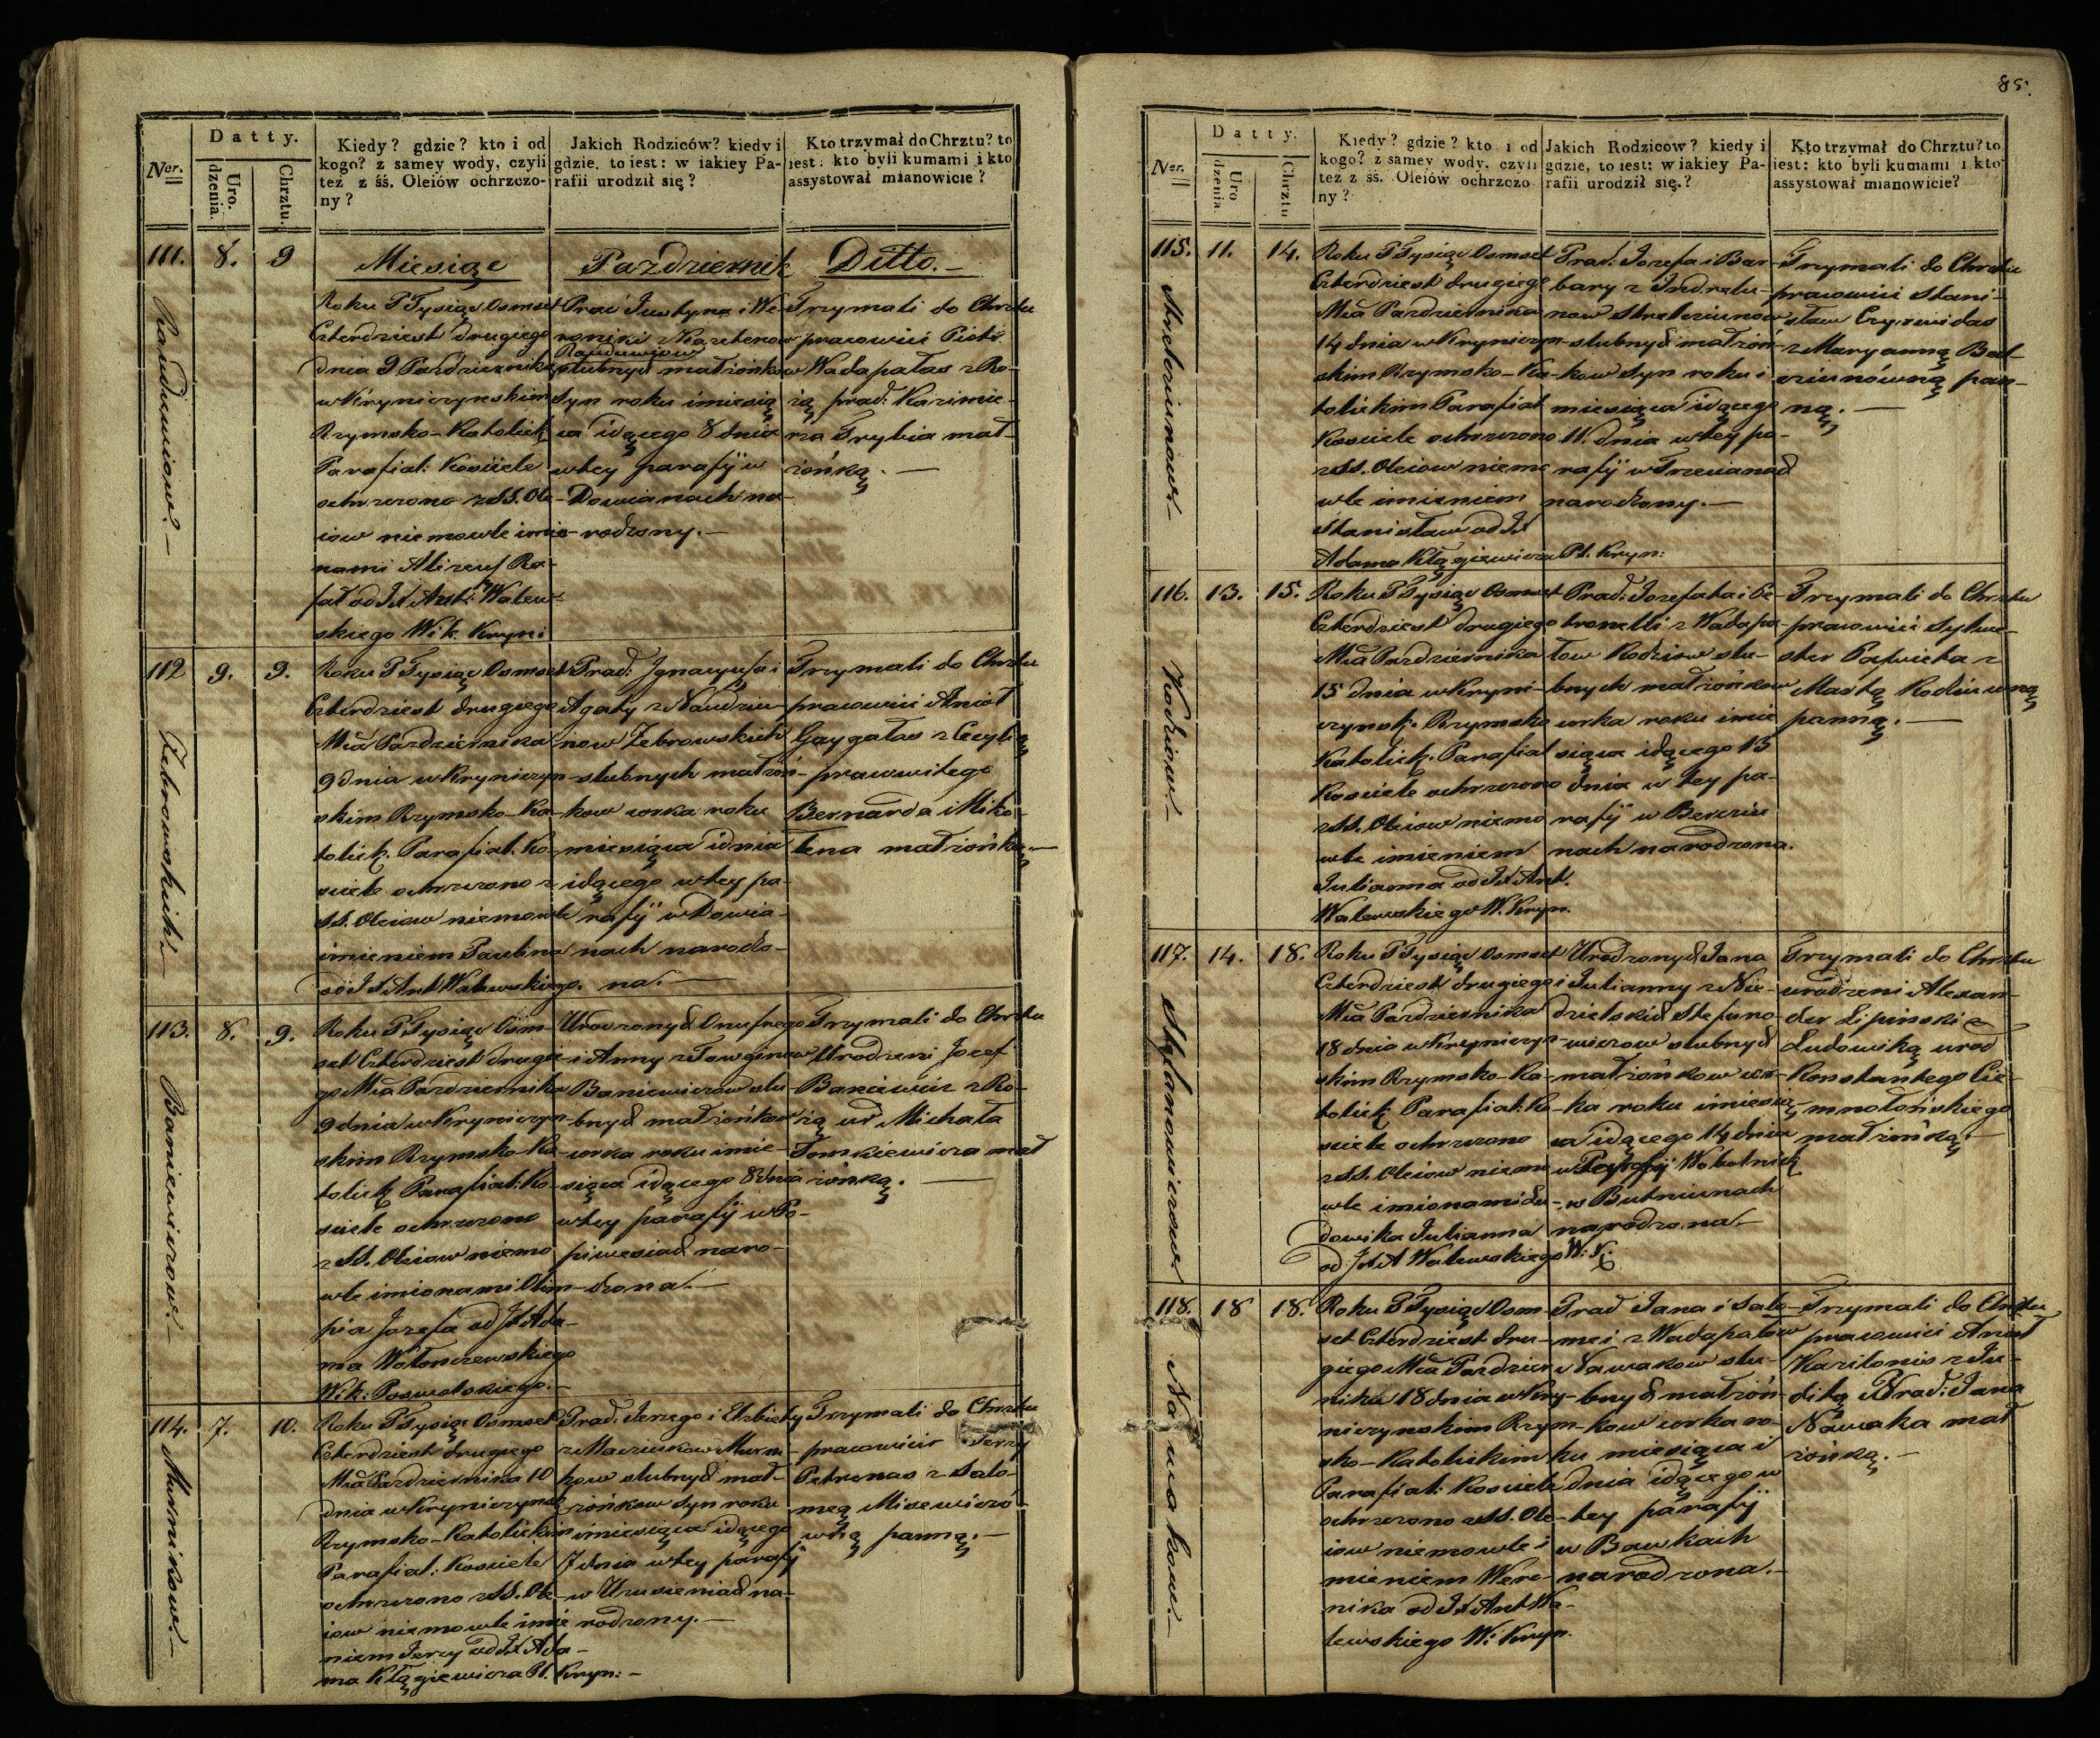 85.
Datty.
Ner.
Uro-
dzenia.
Chrztu.
Kiedy? gdzie? kto i od
kogo? z samey wody, czyli
też z śś. Oleiów ochrzczo-
ny?
Jakich Rodziców? kiedy i
gdzie, to iest: w iakiey Pa-
rafii urodził się?
Kto trzymał do Chrztu? to
iest: kto byli kumami i kto
assystował mianowicie?
111.
8.
9
Raudurviow.—
Miesiąc
Roku P Tysiąc Osmset
Czterdziest drugiego
dnia 9 Pazdziernika
w Kryniczynskim
Rzymsko-Katolick
Parafial: Kościele
ochrzczono z SS. Ole-
iow niemowle imio-
nami Alizeusz Ra-
fał od JX Ant: Walew-
skiego Wik. Kryni
Pazdziernik
Prac Justyna i We-
roniki z Karcterow
Raudurviow
slubnych małżonkow
Syn roku i miesią
ca idącego 8 dnia
w tey parafij w
Dowianach na-
rodzony.—
Ditto.—
Trzymali do Chrztu
pracowici Piotr
Wadapałas z Ro-
zą prad: Kazimie-
rza Trybia mał-
żonką.—
112
9.
9.
Zebrowskich.—
Roku P Tysiąc Osmset
Czterdziest drugiego
Mca Pazdziernika
9 dnia w Kryniczyn-
skim Rzymsko-Ka-
tolick. Parafial. Ko-
sciele ochrzczono z
SS. Oleiow niemowle
imieniem Paulina
od JX Ant Walewskiego.
Prad: Ignacyusza i
Agaty z Naudziu-
now Zebrowskich
slubnych małżon-
kow corka roku
miesiąca i dnia
idącego w tey pa-
rafij w Dowia-
nach narodzo-
na.—
Trzymali do Chrztu
pracowici Anioł
Gaygałas z Cecylią
pracowitego
Bernarda Miko-
łena małżonką—
113.
8.
9.
Baniewiczow.—
Roku P Tysiąc Osm-
set Czterdziest drugie-
go Mca Pazdziernika
9 dnia w Kryniczyn-
skim Rzymsko-Ka-
tolick Parafial: Ko-
sciele ochrzczono
z SS. Oleiow niemo
wle imionami Olim-
pia Jozefa od JX Ada-
ma Wołonczewskiego
Wik: Poswolskiego.—
Urodzonych Onufrego
i Anny z Towginow
Baniewiczow slu-
bnych małżonkow
corka roku i mie-
siąca idącego 8 dnia
w tey parafij w Po-
piwesiach naro-
dzona.—
Trzymali do Chrztu
Urodzeni Jozef
Baniewicz z Ro-
zą ur Michała
Tomkiewicza mał
żonką.—
114.
7.
10.
Murnikow.—
Roku P Tysiąc Osmset
Czterdziest drugiego
Mca Pazdziernika 10
dnia w Kryniczynsk
Rzymsko-Katolickim
Parafial: Kosciele
ochrzczono z SS. Ole-
iow niemowle imie
niem Jerzy od JX Ada-
ma Kłągiewicza Pl. Kryn:—
Prad: Jerzego i Elzbiety
z Maciukow Murni-
kow slubnych mał-
żonkow Syn roku
i miesiąca idącego
7 dnia w tey parafij
w Uzusieniach na-
rodzony.—
Trzymali do Chrztu
pracowici Jerzy
Petrenas z Salo-
meą Misewiczó-
wną panną.—
Datty.
Ner.
Uro
dzenia
Chrztu
Kiedy? gdzie? kto i od
kogo? z samey wody, czyli
też z śś. Oleiów ochrzczo
ny?
Jakich Rodziców? kiedy i
gdzie, to iest: w iakiey Pa-
rafii urodził się?
Kto trzymał do Chrztu? to
iest: kto byli kumami i kto
assystował mianowicie?
115.
11.
14.
Streleciunow.—
Roku P Tysiąc Osmset
Czterdziest drugiego
Mca Pazdziernika
14 dnia w Kryniczyn-
skim Rzymsko-Ka-
tolickim Parafial
Kosciele ochrzczono
z SS. Oleiow niemo
wle imieniem
Stanisław od JX
Adama Kłągiewicza Pl. Kryn:
Prad: Jozefa i Bar-
bary z Indrelu-
now Streleciunow
slubnych małżon-
kow Syn roku i
miesiąca idącego
11. dnia w tey pa-
rafij w Trecianach
narodzony.—
Trzymali do Chrztu
pracowici Stani-
sław Czyrwidas
z Maryanną Bal-
ciunówną pan-
ną.—
116.
13.
15.
Kodziow.—
Roku P Tysiąc Osmset
Czterdziest drugiego
Mca Pazdziernika
15 dnia w Kryni-
czynsk. Rzymsko
Katolick. Parafial
Kosciele ochrzczono
z SS. Oleiow niemo
wle imieniem
Julianna od JX Ant.
Walewskiego W. Kryn.
Prad: Jozefata i Pe-
tronelli z Wadapa-
łow Kodziow slu-
bnych małżonkow
corka roku i mie
siąca idącego 13
dnia w tey pa-
rafij w Berciu
nach narodzona.
Trzymali do Chrztu
pracowici Sylwe-
ster Pawieka z
Martą Kodiuwną
panną.—
117.
14.
18.
Stefanowiczow
Roku P Tysiąc Osmset
Czterdziest drugiego
Mca Pazdziernika
18 dnia w Kryniczyn-
skim Rzymsko-Ka-
tolick Parafial: Ko-
sciele ochrzczono
z SS. Oleiow niemo
wle imionami Lu-
dowika Julianna
od JX A Walewskiego W: K.
Urodzonych Jana
i Julianny z Nie-
dzielskich Stefano-
wiczow slubnych
małżonkow cor-
ka roku i miesią-
ca idącego 14 dnia
w Parafij Wobolnick
w Butniunach
narodzona.—
Trzymali do Chrztu
urodzeni Alexan-
der Lipinski z
Ludowiką urod
Konstantego Cie-
mnołońskiego
małżonką.—
118.
18
18.
Nawakow.—
Roku P Tysiąc Osm-
set Czterdziest dru-
giego Mca Pazdzier
nika 18 dnia w Kry-
niczynskim Rzym-
sko-Katolickim
Parafial: Kosciele
ochrzczono z SS. Ole-
iow niemowle i
mieniem Wero-
nika od JX Ant Wa-
lewskiego W: Kryn.
Prad Jana i Salo-
mei z Wadapałow
Nawakow slu-
bnych małżon-
kow corka ro-
ku miesiąca i
dnia idącego w
tey parafij
w Bawkach
narodzona.—
Trzymali do Chrztu
pracowici Anioł
Karilonis z Ju-
ditą Prad: Jana
Nawaka mał
żonką.—